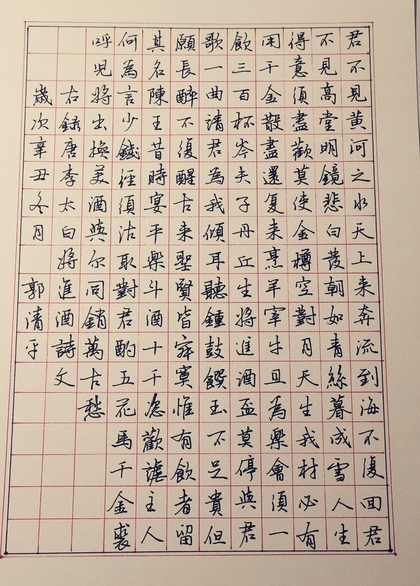 君不見黃河之水天上来奔流到海不復回君
不見高堂明鏡悲白髮朝如青絲暮成雪人生
得意須盡歡莫使金樽空對月天生我材必有
用千金散盡還复来烹羊宰牛且為樂會須一
飲三百杯岑夫子丹丘生將進酒盃莫停與君
歌一曲請君為我傾耳聽鍾鼓饌玉不足貴但
願長醉不復醒古来聖賢皆寂寞惟有飲者留
其名陳王昔時宴平樂斗酒十千恣歡謔主人
何為言少錢徑須沽取對君酌五花馬千金裘
呼兒將出換美酒與尔同銷萬古愁
右録唐李太白將進酒詩文
歲次辛丑冬月 郭清平